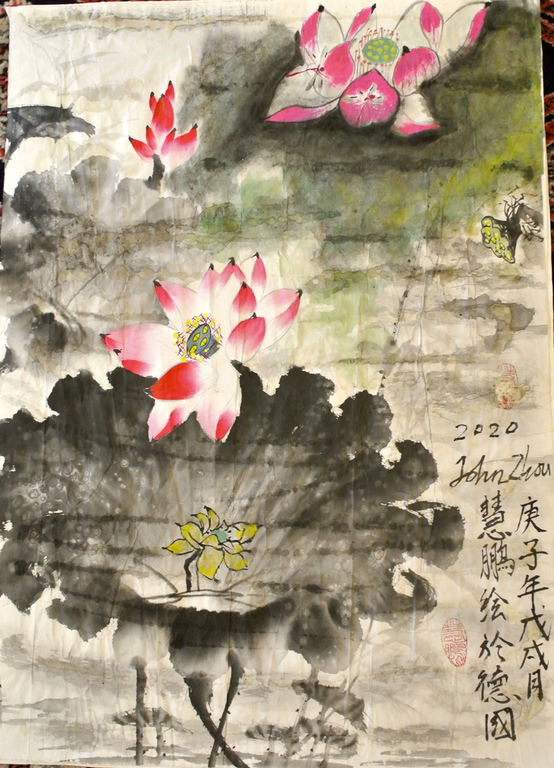 2020
John Zhou
庚子年戊戌月
慧鹏绘於德國